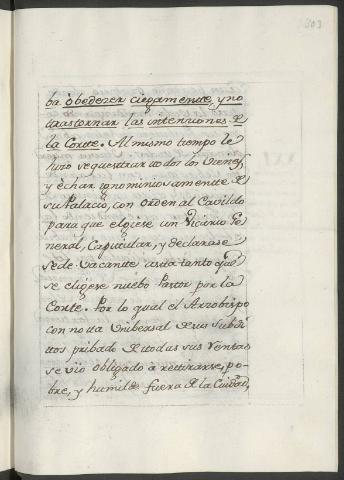 303
ba obedezer ciegamente, y no
trastornar las intenciones de
la Corte. Al mismo tiempo le
hizo sequestrar todos los Vienes,
y echar ignominiosamente de
su Palacio, con orden al Cavildo
para que eligiese un Vicario Ge
neral, Capitular, y declarase
Sede Vacante asta tanto que
se eligiese nuebo Pastor por la
Corte. Por lo qual el Arzobispo
con nota Unibersal de sus Subdi
tos pribado de todas sus Rentas
se vió obligado à retirarse, po-
bre, y humilde fuera de la Ciudad,